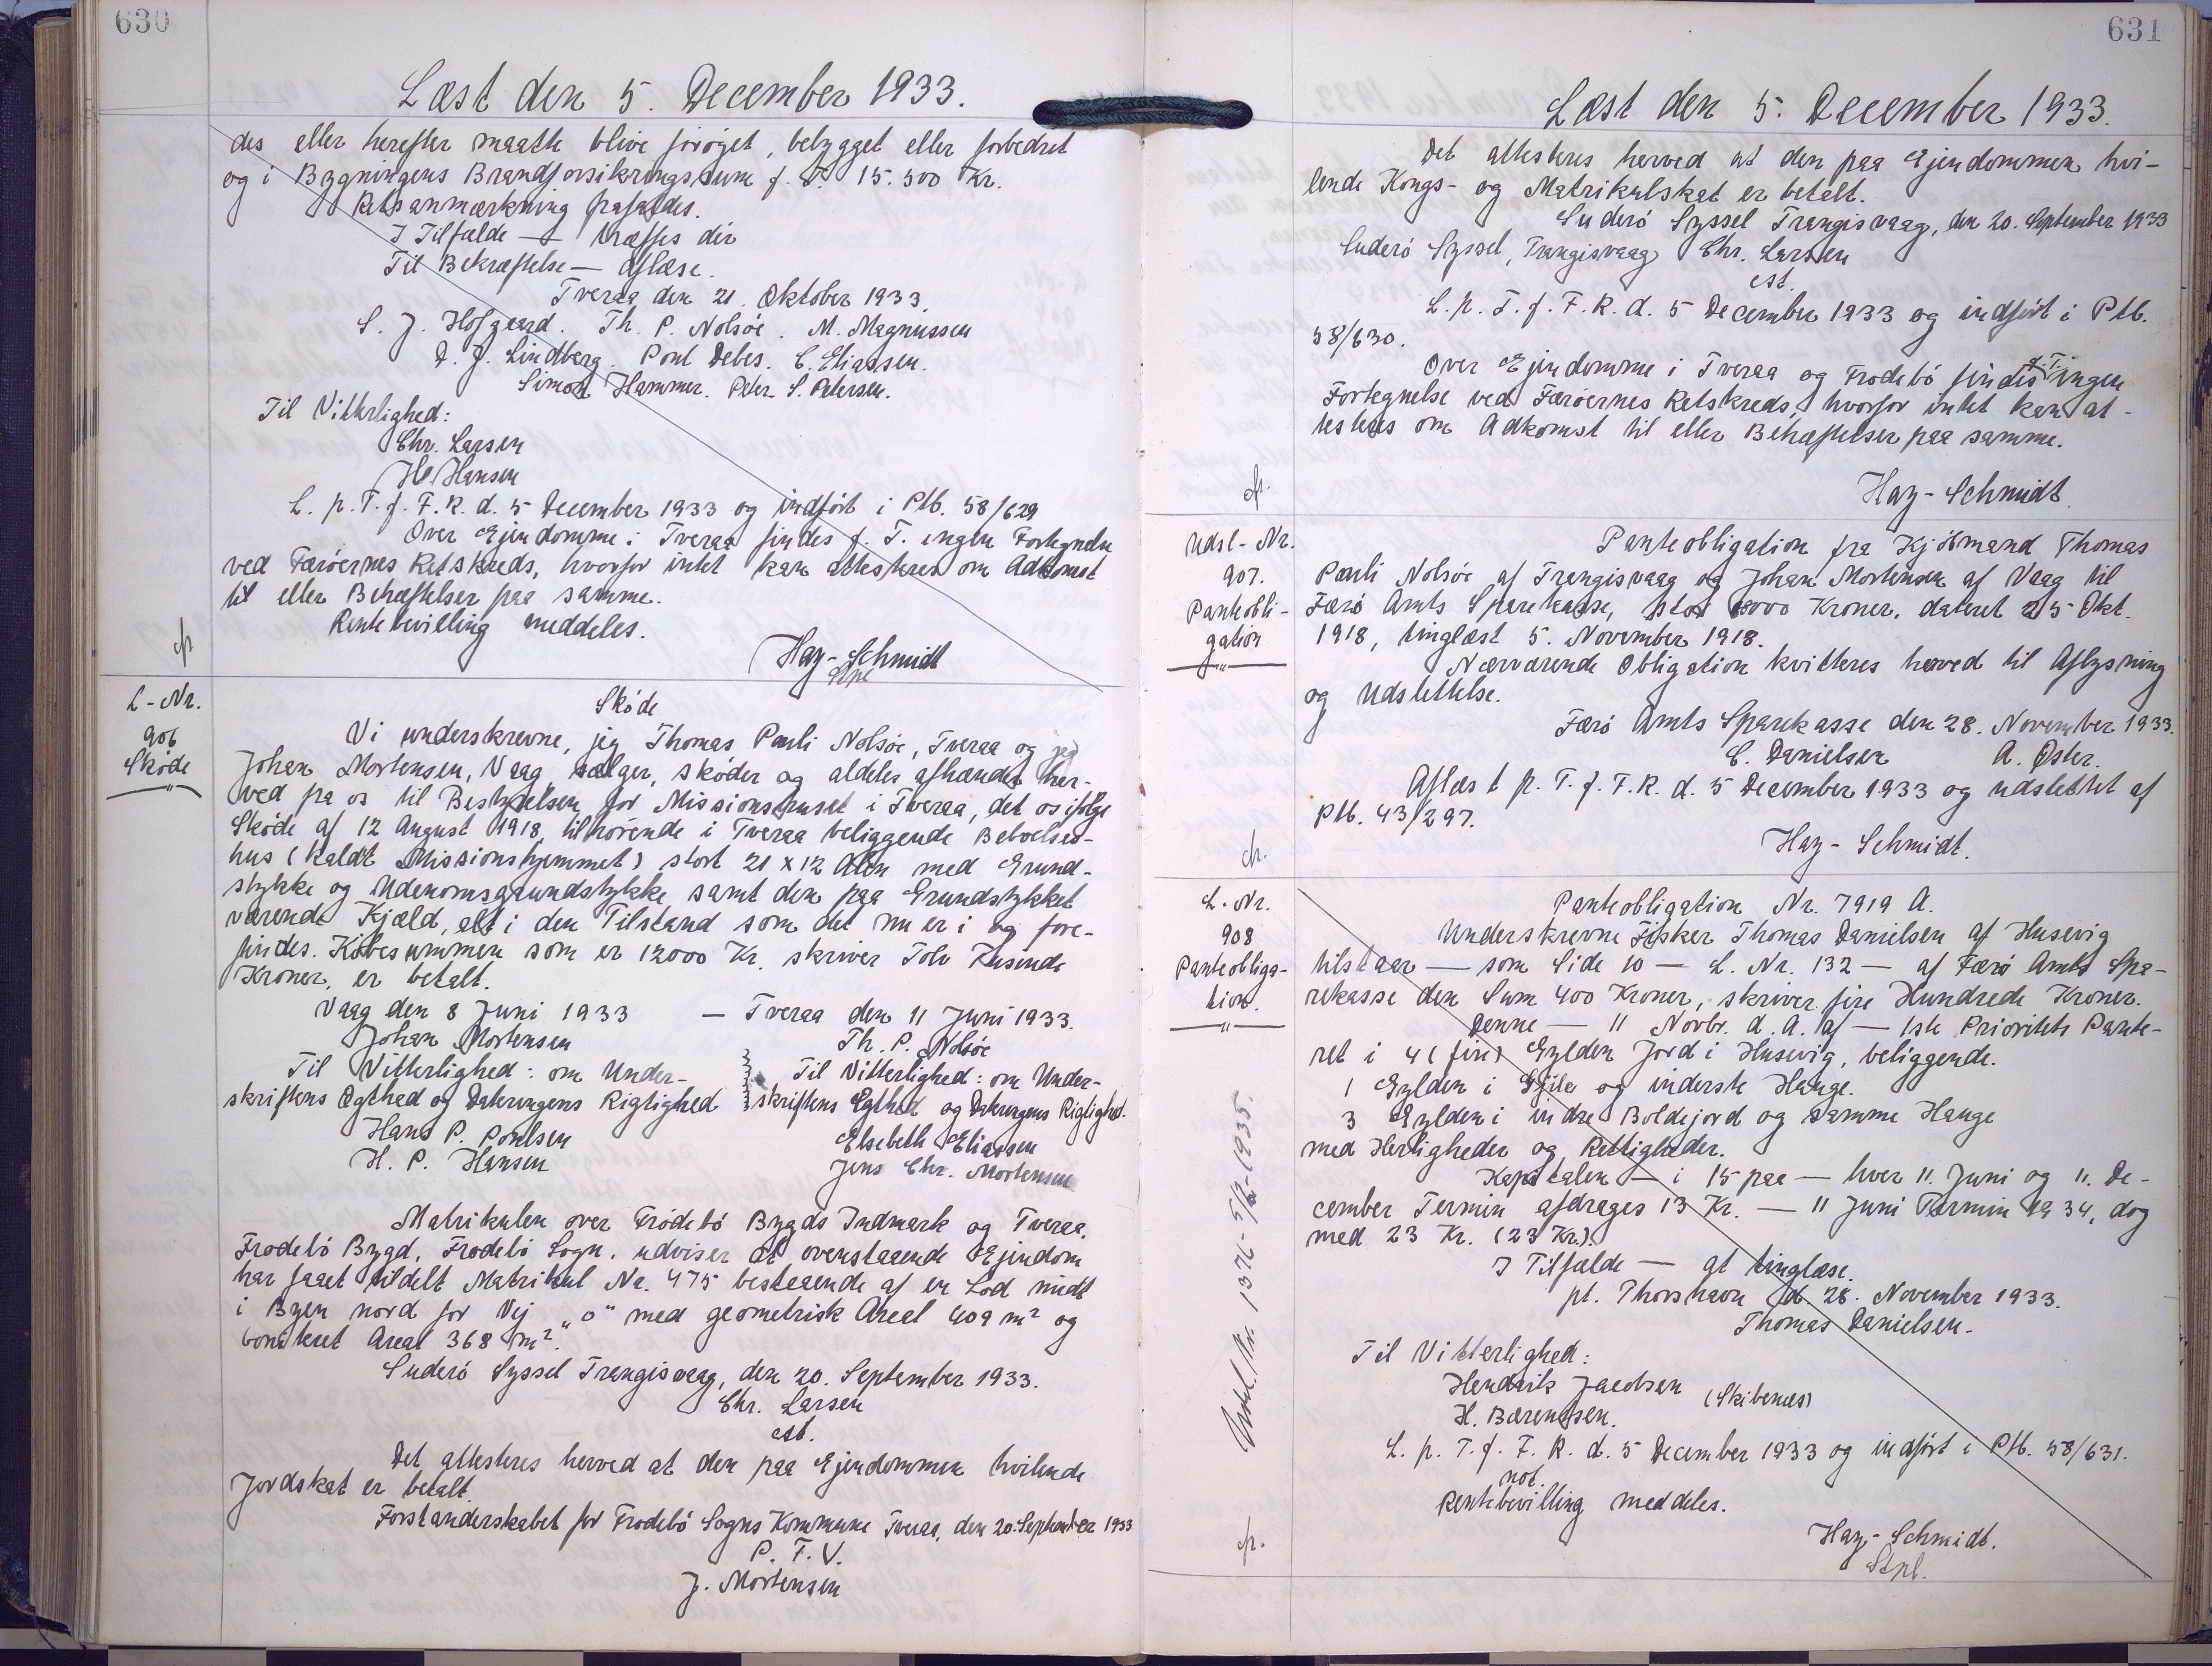 630
Læst den 5. December 1933.
des eller herefter maatte blive forøget, bebygget eller forbedret
og i Bygningens Brandforsikringssum f. T. 15.500 Kr.
Retsanmærkning frafaldes.
I Tilfælde — træffes dir
Til Bekræftelse — aflæse.
Tveraa den 21. Oktober 1933.
S. J. Hofgaard. Th. P. Nolsøe. M. Magnussen
D. J. Lindberg. Poul Debes. C. Eliassen.
Simon Hammer. Peter S. Petersen.
Til Vitterlighed:
Chr. Larsen
H. Hansen
L. p. T. f. F. R. d. 5 December 1933 og indført i Ptb. 58/629
Over Ejendomme i Tveraa findes f. T. ingen Fortegnelse
ved Færøernes Retskreds, hvorfor intet kan attesteres om Adkomst
til eller Behæftelser paa samme.
Rentebevilling meddeles.
Hay-Schmidt
Stpl
L-Nr.
906
Skøde
"
Skøde
Vi underskrevne, jeg Thomas Pauli Nolsøe, Tveraa og jeg
Johan Mortensen, Vaag sælger, skøder og aldeles afhænder her-
ved fra os til Bestyrelsen for Missionshuset i Tveraa, det os ifølge
Skøde af 12 August 1918, tilhørende i Tveraa beliggende Beboelses-
hus (kaldt Missionshjemmet) stort 21 x 12 Alen med Grund-
stykke og Udenomsgrundstykke samt den paa Grundstykket
værende Kjæld, alt i den Tilstand som det nu er i og fore-
findes. Købesummen som er 12000 Kr. skriver Tolv Tusinde
Kroner, er betalt.
Vaag den 8 Juni 1933 — Tveraa den 11 Juni 1933.
Johan Mortensen Th. P. Nolsøe
Til Vitterlighed: om Under- Til Vitterlighed: om Under-
skriftens Ægthed og Dateringens Rigtighed skriftens Egthed og Dateringens Rigtighed.
Hans P. Poulsen Elsebeth Eliassen
H. P. Hansen Jens Chr. Mortensen
Matrikulen over Frodebø Bygds Indmark og Tveraa,
Frodebø Bygd, Frodebø Sogn, udviser at ovenstaaende Ejendom
har faaet tildelt Matrikul Nr. 475 bestaaende af en Lod midt
i Byen nord for Vej „o" med geometrisk Areal 409 m² og
boniteret Areal 368 m².
Suderø Syssel Trangisvaag, den 20. September 1933.
Chr. Larsen
cst.
Det attesteres herved at den paa Ejendommen hvilende
Jordskat er betalt.
Forstanderskabet for Frodebø Sogns Kommune Tveraa, den 20. September 1933
P. F. V.
J. Mortensen
631
Læst den 5. December 1933.
Det attesteres herved at den paa Ejendommen hvi-
lende Kongs- og Matrikulskat er betalt.
Suderø Syssel Trangisvaag, den 20. September 1933
Suderø Syssel, Trangisvaag Chr. Larsen
cst.
L. p. T. f. F. R. d. 5 December 1933 og indført i Ptb.
58/630.
Over Ejendomme i Tveraa og Frodebø findes f. T. ingen
Fortegnelse ved Færøernes Retskreds, hvorfor intet kan at-
testeres om Adkomst til eller Behæftelser paa samme.
Hay-Schmidt
Udsl-Nr.
907.
Panteobli-
gation
"
Panteobligation fra Kjøbmand Thomas
Pauli Nolsøe af Trangisvaag og Johan Mortensen af Vaag til
Færø Amts Sparekasse, stor 8000 Kroner, dateret 25 Okt.
1918, tinglæst 5. November 1918.
Nærværende Obligation kvitteres herved til Aflysning
og Udslettelse.
Færø Amts Sparekasse den 28. November 1933.
C. Danielsen A. Øster.
Aflæst p. T. f. F. R. d. 5 December 1933 og udslettet af
Ptb. 43/297.
Hay-Schmidt.
L-Nr.
908
Panteobliga-
tion.
"
Panteobligation Nr. 7919 A.
Underskrevne Fisker Thomas Danielsen af Husevig
tilstaar — som Side 10 — L. Nr. 132 — af Færø Amts Spa-
rekasse den Sum 400 Kroner, skriver fire Hundrede Kroner.
Denne — 11 Novbr. d. A. af — 1ste Prioritets Pante-
ret i 4 (fire) Gylden Jord i Husevig, beliggende.
1 Gylden i Gjile og inderste Hauge.
3 Gylden i indre Boldejord og samme Hauge
med Herligheder og Rettigheder.
Kapitalen — i 15 paa — hver 11. Juni og 11. De-
cember Termin afdrages 13 Kr. — 11 Juni Termin 1934, dog
med 23 Kr. (23 Kr.).
I Tilfælde — at tinglæse.
pt. Thorshavn d. 28. November 1933.
Thomas Danielsen.
Til Vitterlighed:
Hendrik Jacobsen (Skibenæs)
H. Bærentsen.
L. p. T. f. F. R. d. 5 December 1933 og indført i Ptb. 58/631.
not.
Rentebevilling meddeles.
Hay-Schmidt.
Stpl.
Udsl. Nr. 1376 - 5/12-1935.